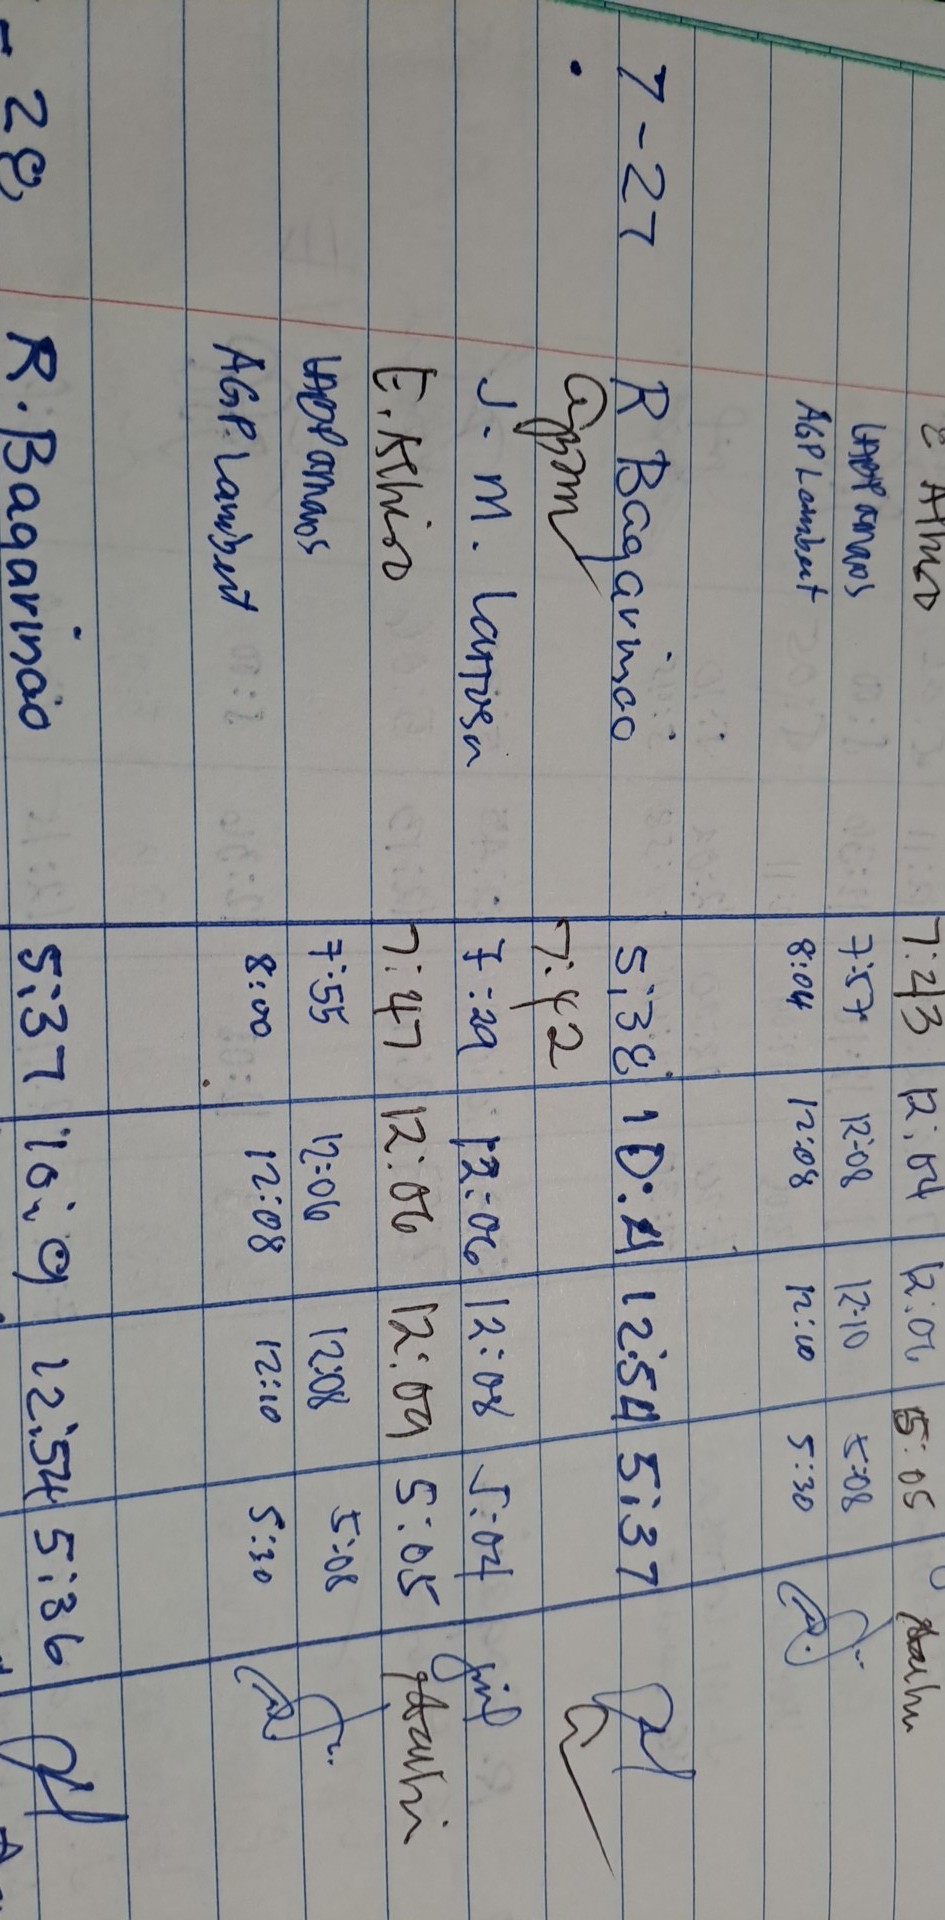 7:43 12:04 12:06 5:05
7:57 12:08 12:10 5:08
AGP Lambert 8:04 12:08 12:10 5:30
7-27 R Bagarinao 5:38 10:41 12:54 5:37
7:42
J. M. Larrosa 7:29 12:06 12:08 5:04
E. 7:47 12:06 12:09 5:05
7:55 12:06 12:08 5:08
AGP. Lambert 8:00 12:08 12:10 5:30
- 28 R. Bagarinao 5:37 12:54 5:36